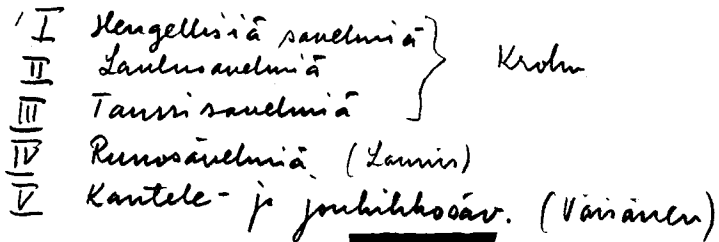 I Hengellisiä sävelmiä
II Laulusävelmiä } Krohn
III Tanssisävelmiä
IV Runosävelmiä (Launis)
V Kantele- ja jouhikkosäv. (Väisänen)